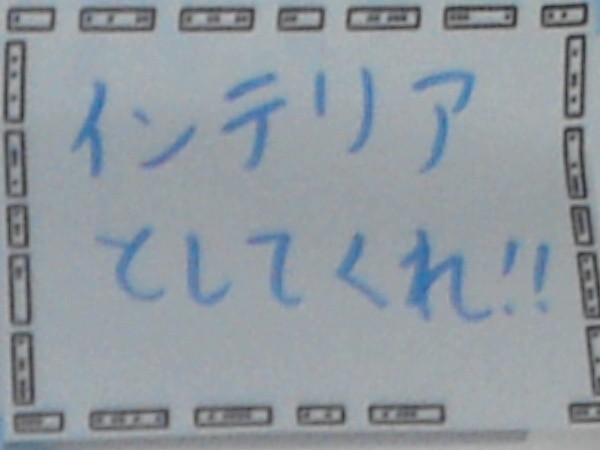 インテリア
としてくれ!!